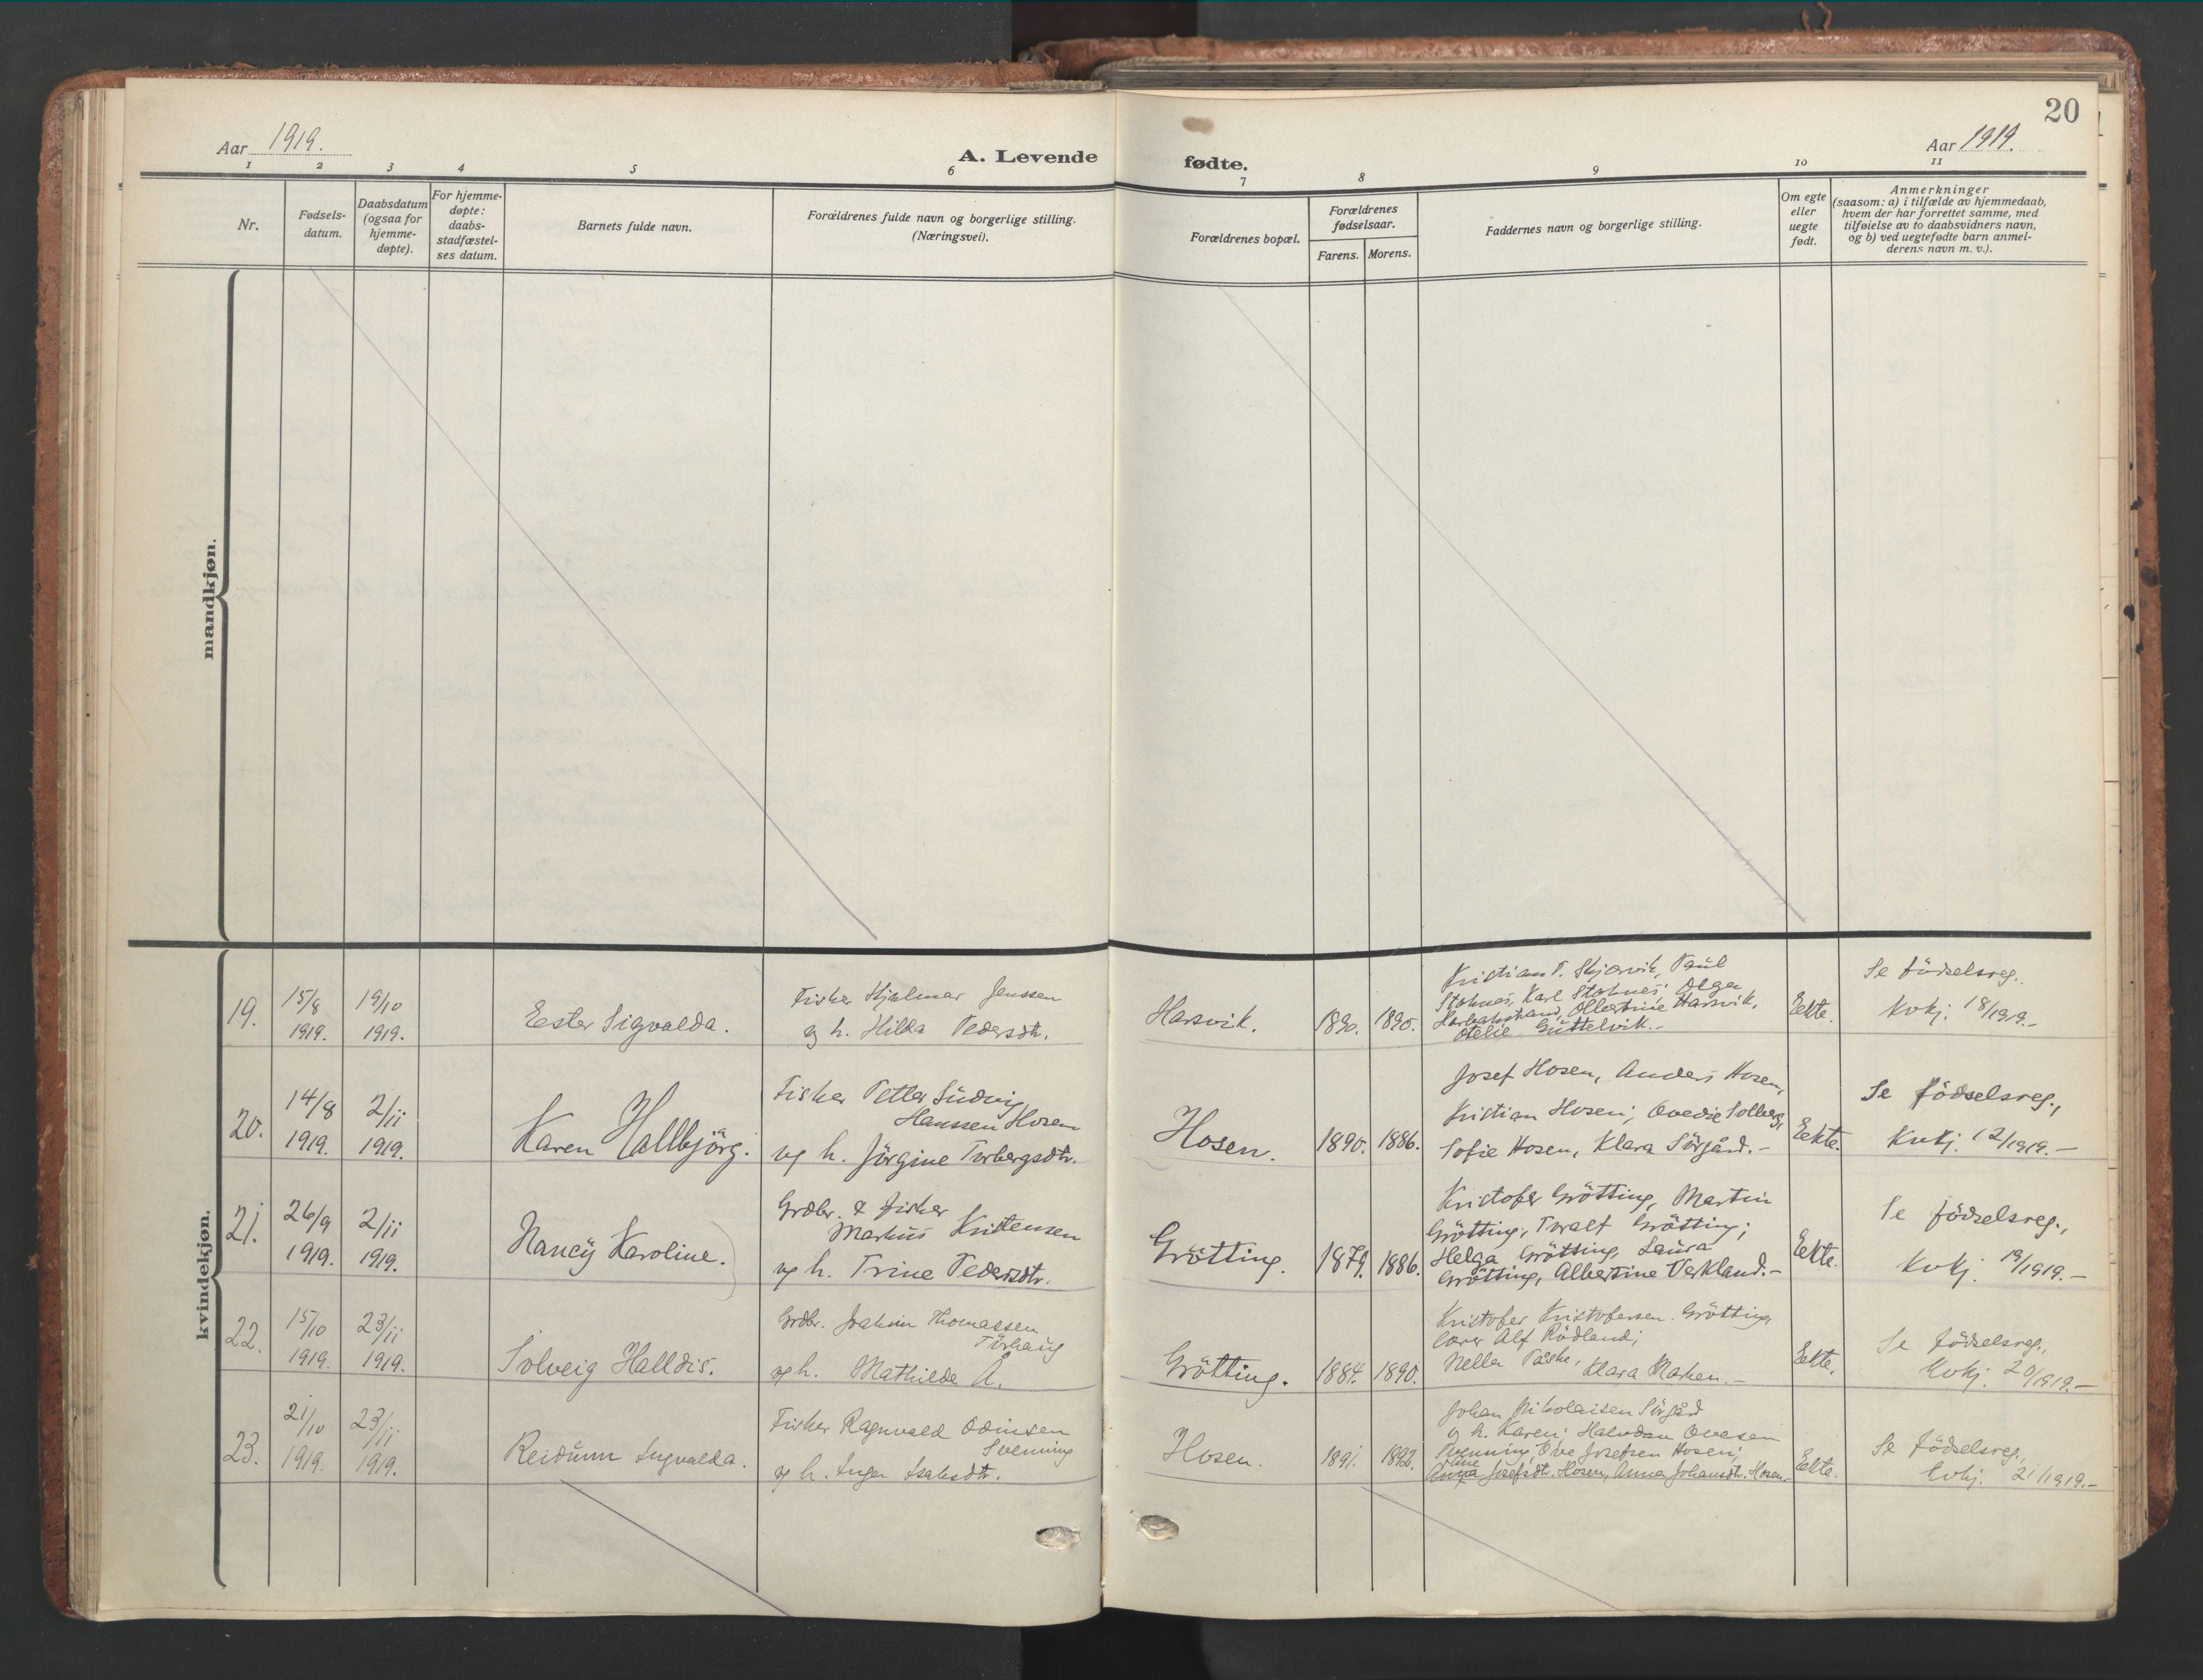 20
Aar 1919.
A. Levende
fødte.
Aar 1919.
1 2 3 4 5 6 7 8 9 10 11
Nr.
Fødsels-
datum.
Daabsdatum
(ogsaa for
hjemme-
døpte).
For hjemme-
døpte:
daabs-
stadfæstel-
ses datum.
Barnets fulde navn.
Forældrenes fulde navn og borgerlige stilling.
(Næringsvei).
Forældrenes bopæl.
Forældrenes
fødselsaar.
Farens. Morens.
Faddernes navn og borgerlige stilling.
Om egte
eller
uegte
født.
Anmerkninger
(saasom: a) i tilfælde av hjemmedaab,
hvem der har forrettet samme, med
tilføielse av to daabsvidners navn,
og b) ved uegtefødte barn anmel-
derens navn m. v.).
mandkjøn.
kvindekjøn.
19.
15/8
1919.
19/10
1919.
Ester Sigvalda.
Fisker Hjalmar Jenssen
og h. Hilda Pedersdtr.
Harsvik.
1890.
1890.
Kristian P. Skjærvik, Paul
Stoknes, Karl Stoknes; Olga
Harbakstrand, Ollertine Harsvik,
Otelie Guttelvik.-
Eekte.
Se födselsreg.
Kvkj. 18/1919.-
20.
14/8
1919.
2/11
1919.
Karen Hallbjörg.
Fisker Petter Ludvig
Hanssen Hosen
og h. Jörgine Torbergsdtr.
Hosen.
1890.
1886.
Josef Hosen, Anders Hosen,
Kristian Hosen; Ovedie Solberg,
Sofie Hosen, Klara Sörgård.-
Eekte.
Se födselsreg.,
Kvkj. 12/1919.-
21.
26/9
1919.
2/11
1919.
Nancy Karoline.
Grdbr. & fisker
Markus Kristensen
og h. Trine Pedersdtr.
Grötting.
1879.
1886.
Kristofer Grötting, Martin
Grötting, Toralf Grötting;
Helga Grötting, Laura
Grötting, Albertine Verkland.-
Eekte.
Se födselsreg.,
Kvkj. 19/1919.-
22.
15/10
1919.
23/11
1919.
Solveig Halldis.
Grdbr. Joakim Thomassen
Törhaug
og h. Mathilde A.
Grötting.
1884.
1890.
Kristofer Kristofersen Grötting,
lærer Alf Rödland;
Nella Påske, Klara Marken.-
Eekte.
Se födselsreg.,
Kvkj. 20/1919.-
23.
21/10
1919.
23/11
1919.
Reidunn Ingvalda.
Fisker Ragnvald Odinsen
Svenning
og h. Inga Isaksdtr.
Hosen.
1891.
1892.
Johan Nikolaisen Sörgård
og h. Karen; Halvdan Ovesen
Svenning, Ove Josefsen Hosen;
Anna Josefsdtr. Hosen, Anna Johansdtr. Hosen.-
Eekte.
Se födselsreg.,
Kvkj. 21/1919.-